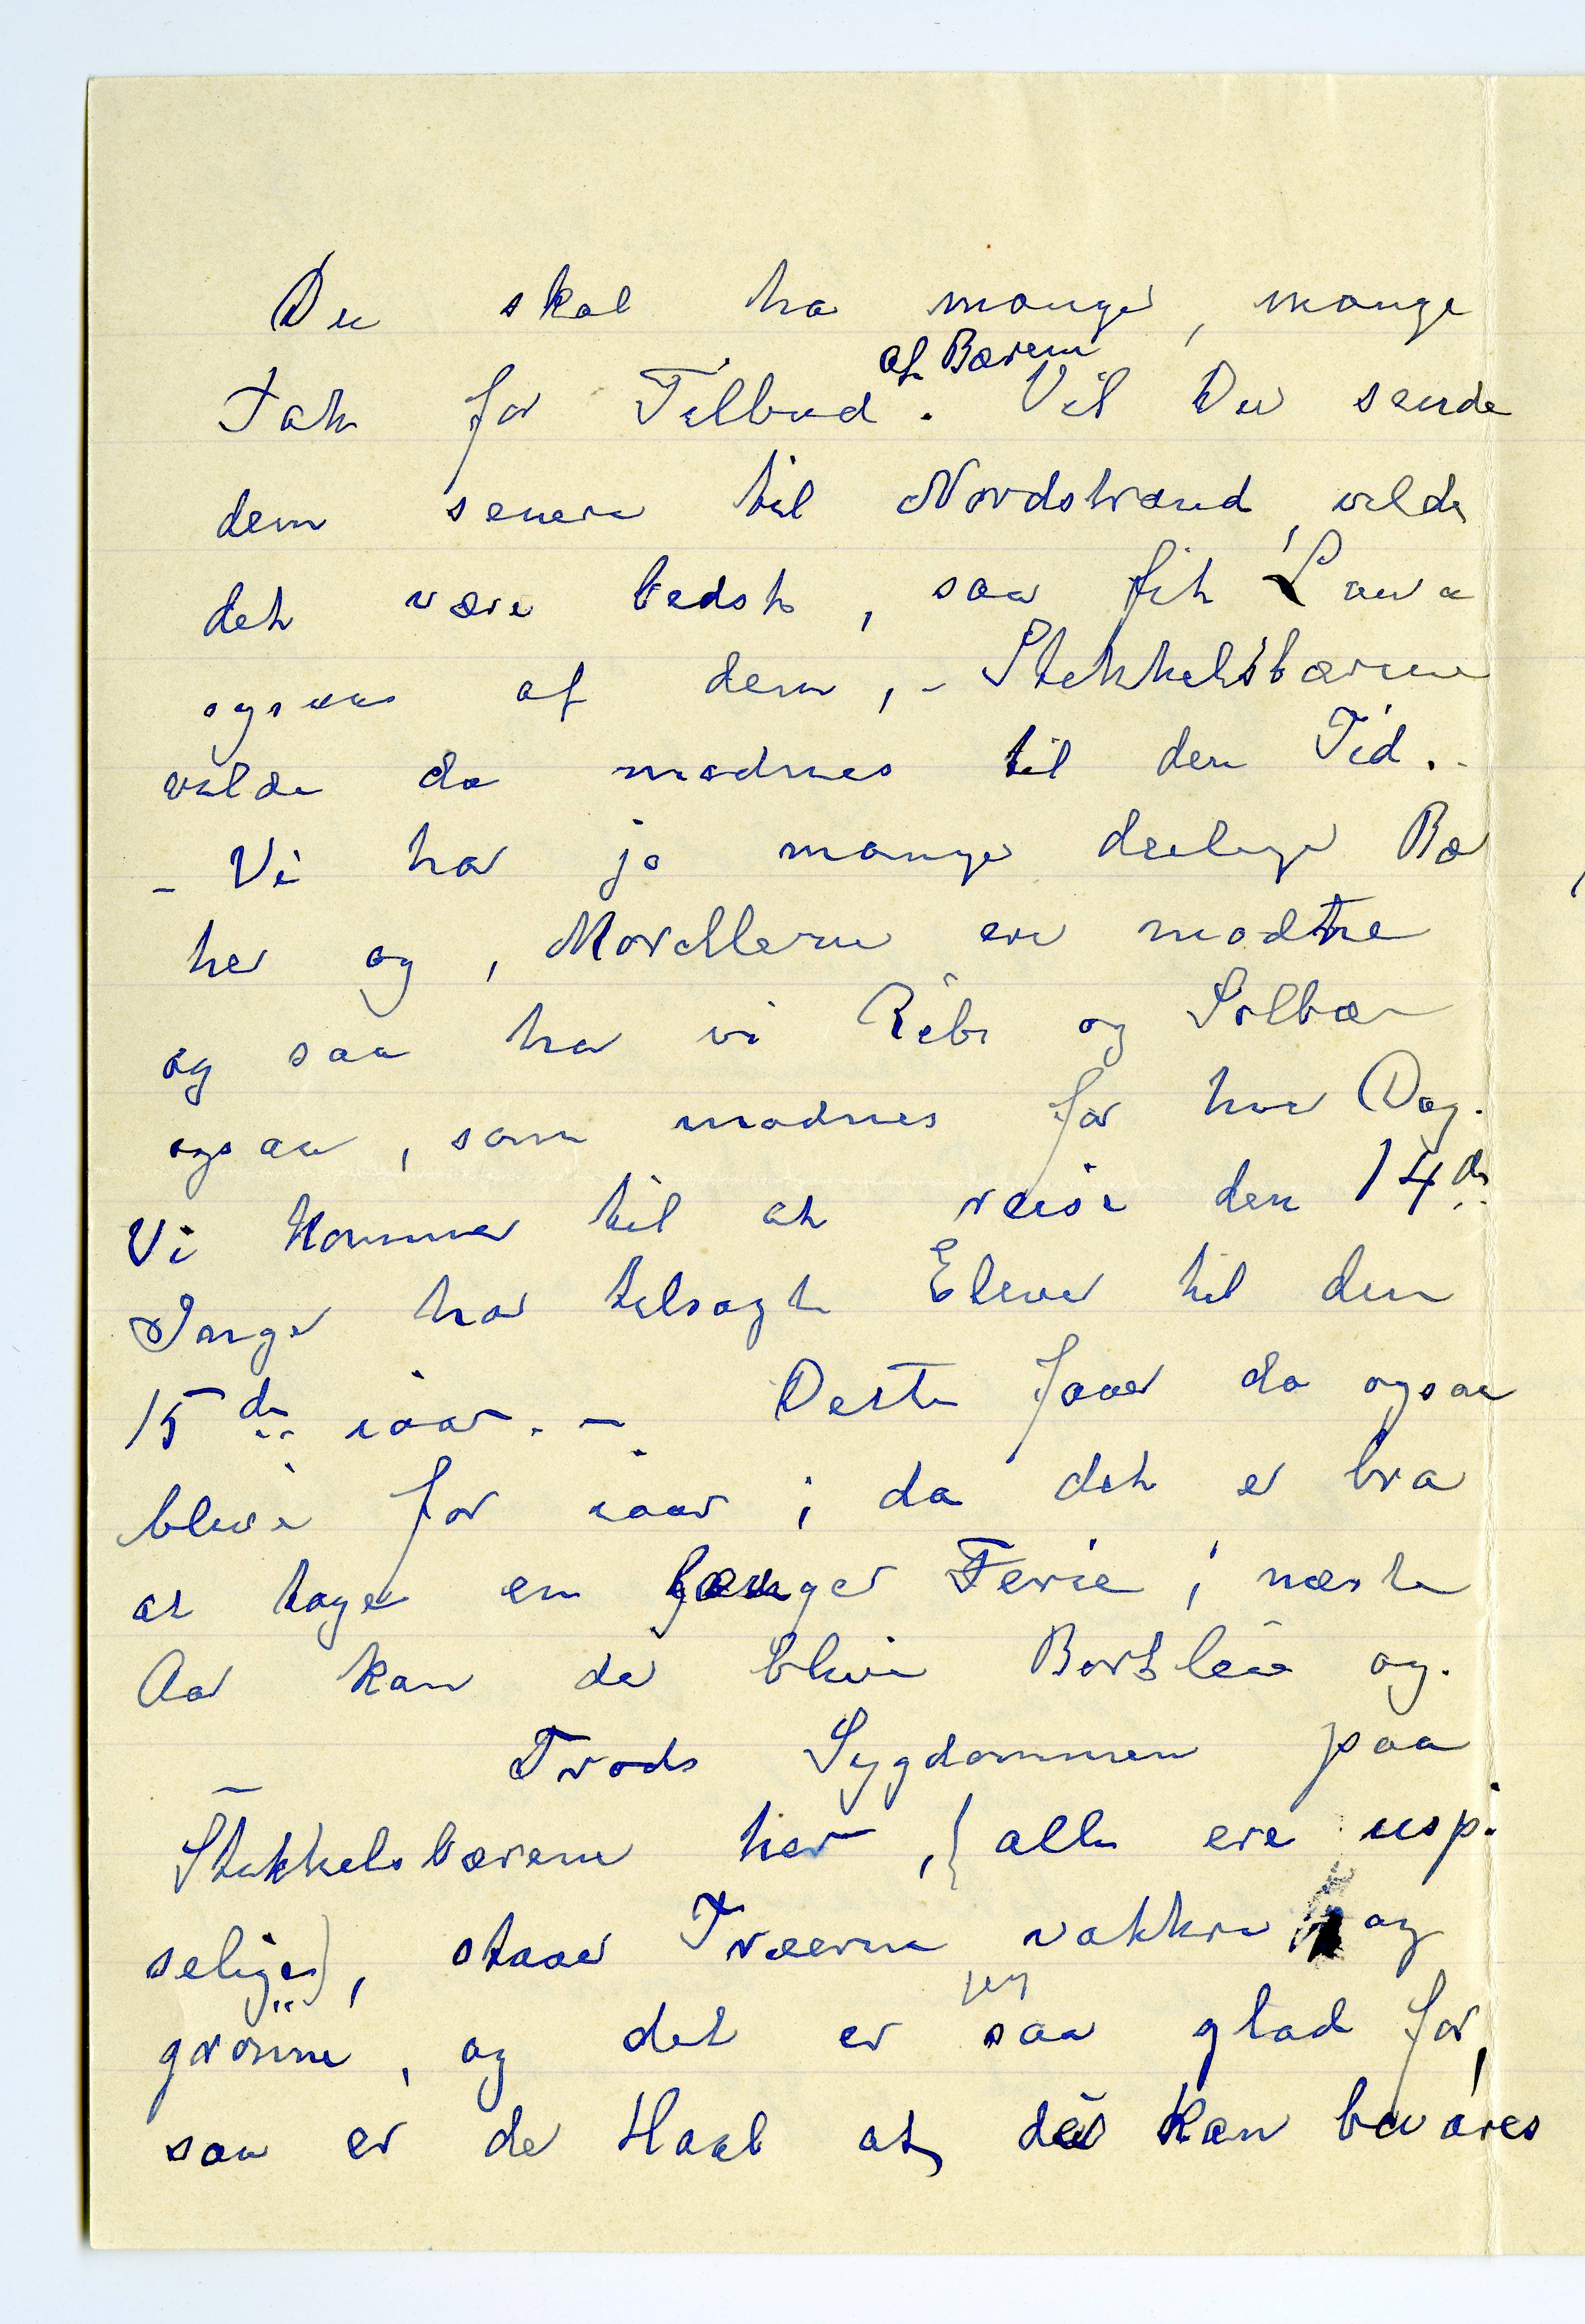 Du skal ha mange, mange
Tak for Tilbud af Bærene. Vil Du sende
dem senere til Nordstrand, vilde
det være bedst, saa fik Laura
ogsaa af dem, - Stikkelsbærene
vilde da modnes til den Tid. -
- Vi har jo mange deilige Bær
her og, Morellerne ere modne
og saa har vi Ribs og Solbær
ogsaa, som modnes for hver Dag.
Vi kommer til at reise den 14de
Inga har tilsagte Elever til den
15de iaar. - Dette faaer da ogsaa
blive for iaar, da det er bra
at tage en længer Ferie; næste
Aar kan der blive Bortleie og.
- Trods Sygdommen paa
Stikkelsbærene her, (alle ere usp.
selige), staaer Træerne vakkre og
grønne, og det er jeg saa glad for,
saa er der Haab at de kan bevares